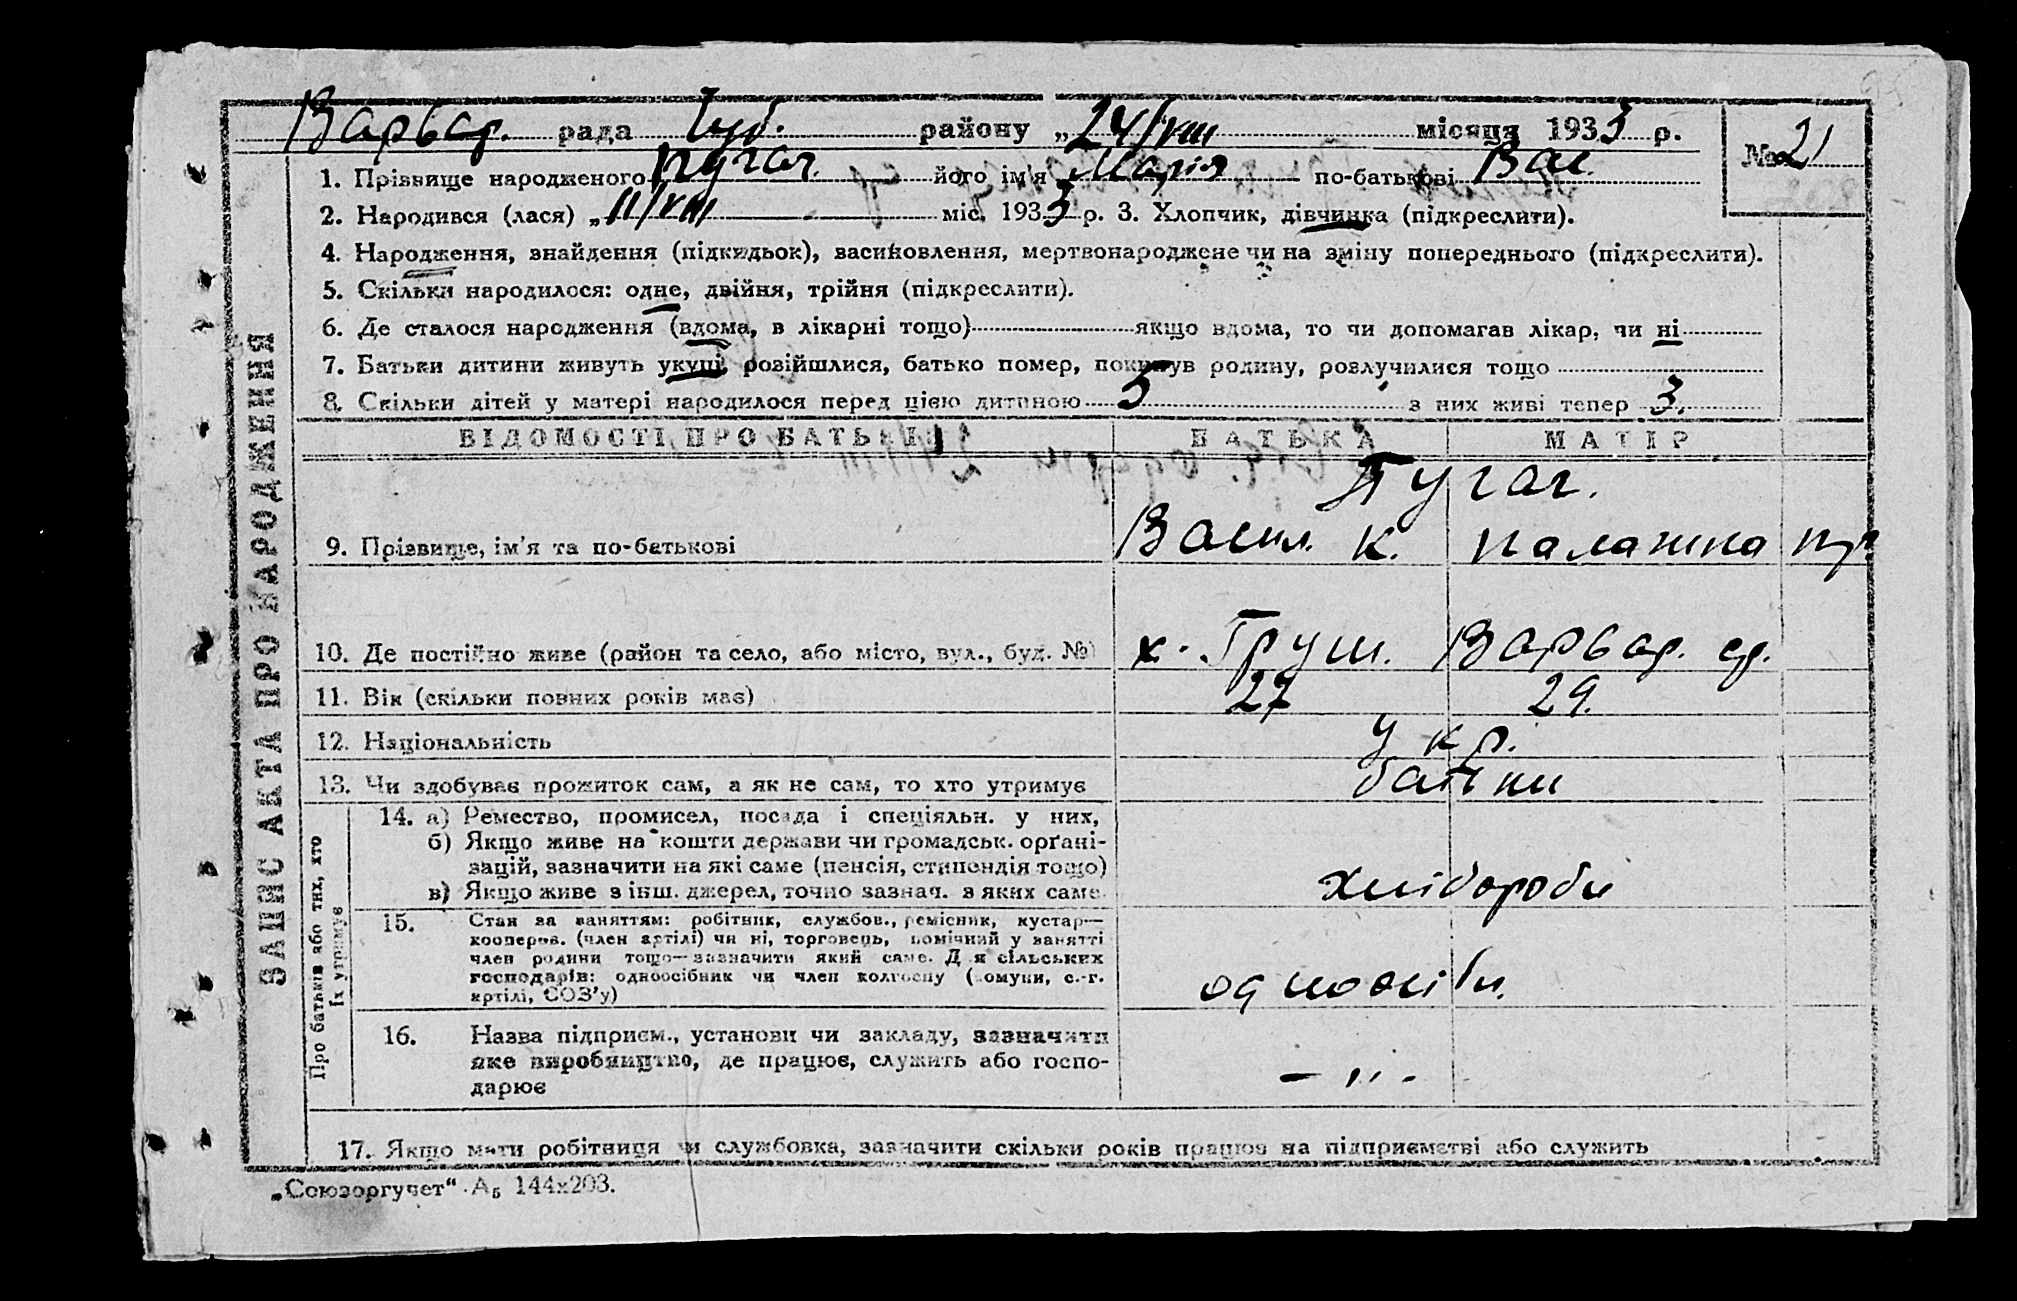 Варвар. рада Чуб. району „24/VIII місяця 1933 р.
№ 21
1. Прізвище народженого Пугач. його ім'я Марія по-батькові Вас.
2. Народився (лася) „11/VIII міс. 1933 р. 3. Хлопчик, дівчинка (підкреслити).
4. Народження, знайдення (підкидьок), засиновлення, мертвонароджене чи на зміну попереднього (підкреслити).
5. Скільки народилося: одне, двійня, трійня (підкреслити).
6. Де сталося народження (вдома, в лікарні тощо) якщо вдома, то чи допомагав лікар, чи ні
7. Батьки дитини живуть укупі, розійшлися, батько помер, покинув родину, розлучилися тощо
8. Скільки дітей у матері народилося перед цією дитиною 5 з них живі тепер 3.
ЗАПИС АКТА ПРО НАРОДЖЕННЯ
ВІДОМОСТІ ПРО БАТЬКІВ БАТЬКА МАТІР
Пугач.
9. Прізвище, ім'я та по-батькові Васил. К. Палажка
10. Де постійно живе (район та село, або місто, вул., буд. №) х. Груш. Варвар. ср.
11. Вік (скільки повних років має) 27 29.
12. Національність Укр.
13. Чи здобуває прожиток сам, а як не сам, то хто утримує батьки
Про батьків або тих, хто
їх утримує
14. а) Ремество, промисел, посада і спеціяльн. у них,
б) Якщо живе на кошти держави чи громадськ. орґані-
зацій, зазначити на які саме (пенсія, стипендія тощо)
в) Якщо живе з інш. джерел, точно зазнач. з яких саме. хлібороби
15. Стан за заняттям: робітник, службов., ремісник, кустар—
кооперов. (член артілі) чи ні, торговець, помічний у занятті
член родини тощо—зазначити який саме. Для сільських
господарів: одноосібник чи член колгоспу (комуни, с.-г.
артілі, СОЗ'у) одноосібн.
16. Назва підприєм., установи чи закладу, зазначити
яке виробництво, де працює, служить або госпо-
дарює – „ -
17. Якщо мати робітниця чи службовка, зазначити скільки років працює на підприємстві або служить
„Союзоргучет“ А₅ 144х203.